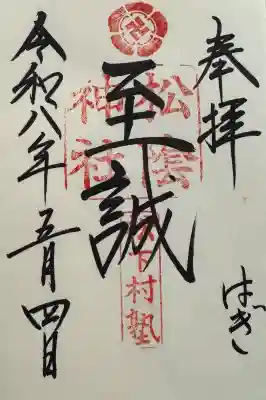 奉拝
はぎし
至誠
松陰神社
松下村塾
令和八年五月四日